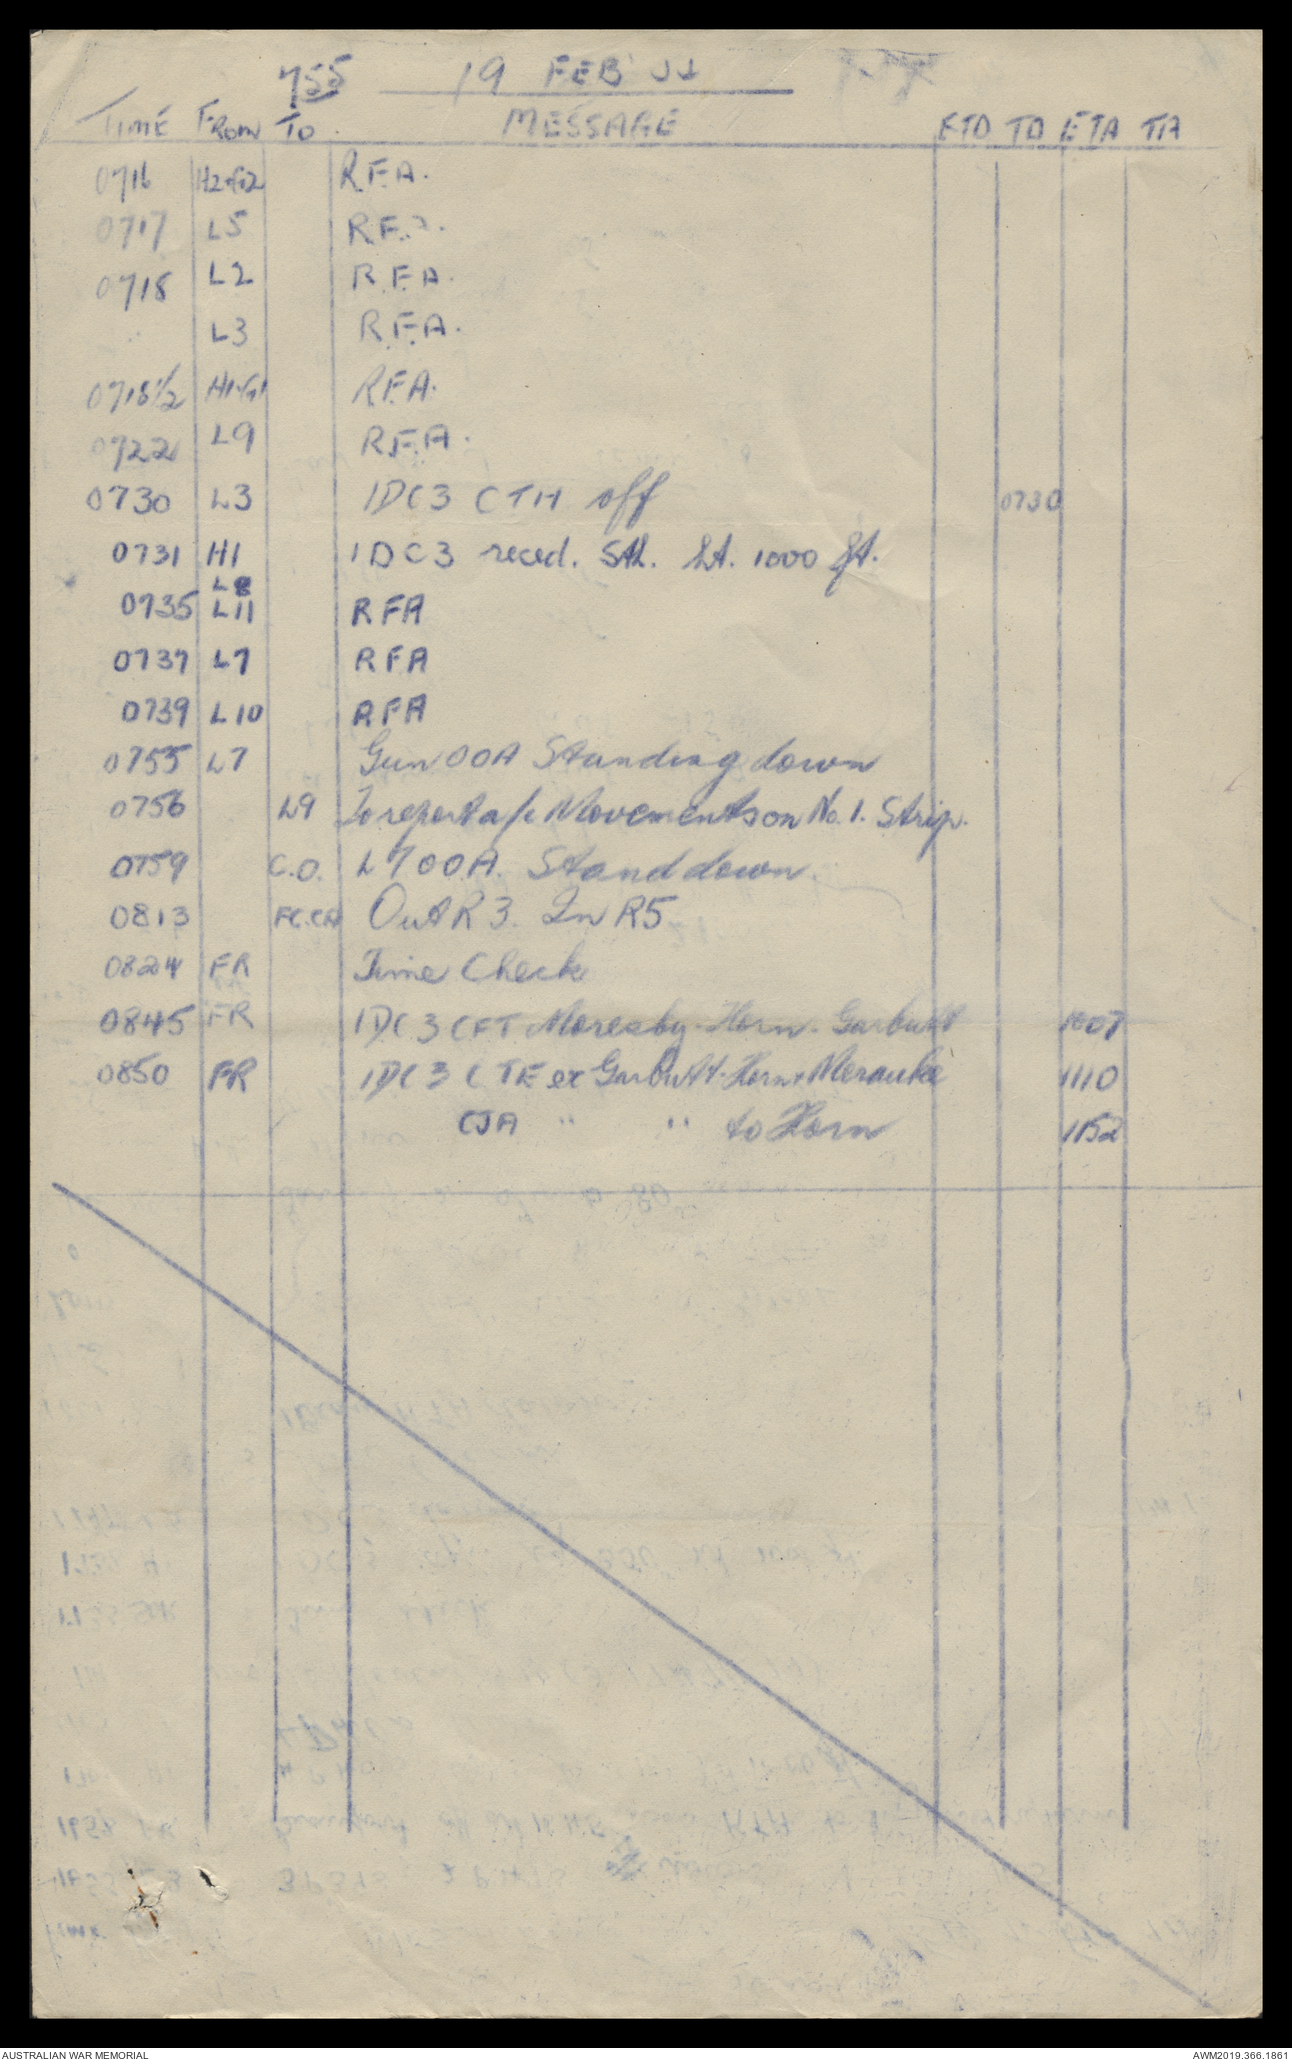 755 19 FEB 44
TIME FROM TO. MESSAGE ETD TD ETA TA
0716 H2+G2 R.F.A.
0717 L5 R.F.A.
0718 L2 R.F.A.
" L3 R.F.A.
0718 1/2 H1+G1 R.F.A.
0722 L9 R.F.A.
0730 L3 1DC3 CTH off 0730
0731 H1 1DC3 reced. Sth. ht. 1000 ft.
L8
0735 L11 RFA
0737 L7 RFA
0739 L10 RFA
0755 L7 Gun OOA Standing down
0756 L9 To report a/c Movements on No. 1. Strip.
0759 C.O. L7 OOA. Stand down.
0813 FC.CA Out R3. In R5
0824 FR Time Check
0845 FR 1DC3 CFT Moresby - Horn - Garbutt 1007
0850 FR 1DC3 CTE ex Garbutt - Horn + Merauke 1110
CJA " " to Horn 1152
AUSTRALIAN WAR MEMORIAL AWM2019.366.1861